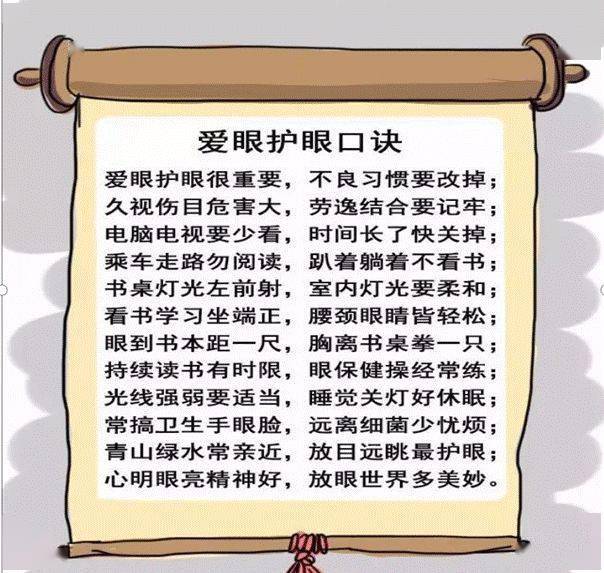 爱眼护眼口诀
爱眼护眼很重要，不良习惯要改掉；
久视伤目危害大，劳逸结合要记牢；
电脑电视要少看，时间长了快关掉；
乘车走路勿阅读，趴着躺着不看书；
书桌灯光左前射，室内灯光要柔和；
看书学习坐端正，腰颈眼睛皆轻松；
眼到书本距一尺，胸离书桌拳一只；
持续读书有时限，眼保健操经常练；
光线强弱要适当，睡觉关灯好休眠；
常搞卫生手眼脸，远离细菌少忧烦；
青山绿水常亲近，放目远眺最护眼；
心明眼亮精神好，放眼世界多美妙。